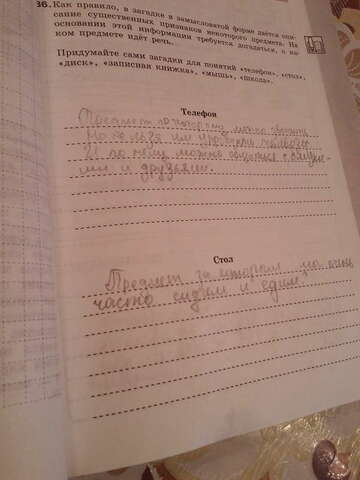 36. Как правило, в загадке в замысловатой форме даётся опи-
сание существенных признаков некоторого предмета. На
основании этой информации требуется догадаться, о ка-
ком предмете идёт речь.
Придумайте сами загадки для понятий «телефон», «стол»,
«диск», «записная книжка», «мышь», «школа».
Телефон
Предмет по которому можно звонить
но нельзя им человека
И по нему можно общаться с
ми и друзьями.
Стол
Предмет за которым мы очень
часто сидим и едим.